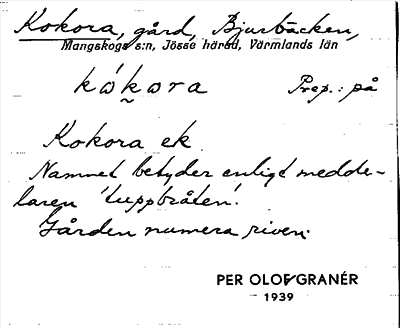 Kokora, gård, Bjurbäcken,
Mangskogs s:n, Jösse härad, Värmlands län
kókωra Prep.: på
Kokora ek.
Namnet betyder enligt medde-
laren 'tuppbråten'.
Gården numera riven.
PER OLOF GRANÉR
1939